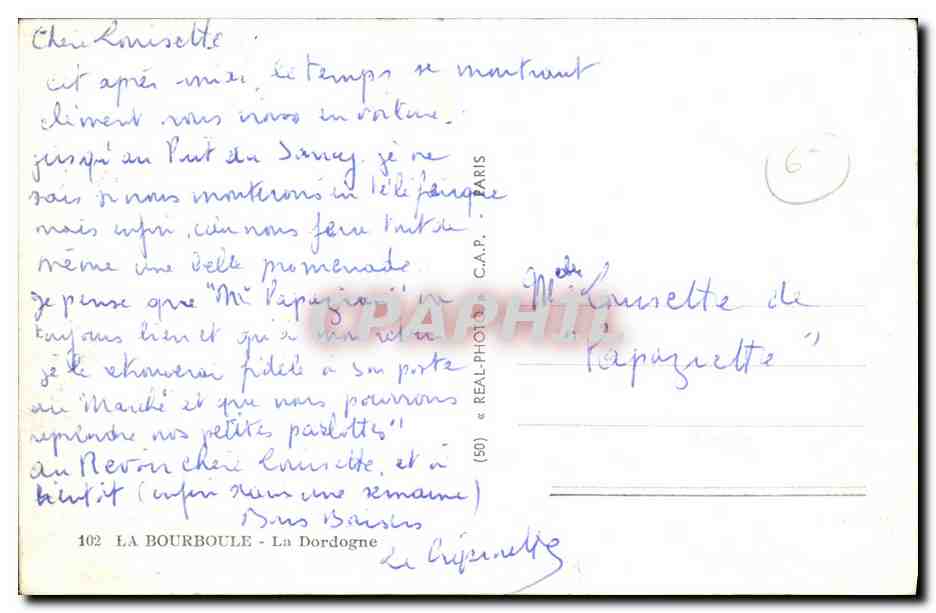 Chère Louisette.
cet après-midi, le temps se montrant
clément nous irons en voiture.
jusqu'au Puit du Sancy. je ne
sais si nous monterons en téléférique
mais enfin, cela nous fera tout de
même une belle promenade.
je pense que "Mr va
toujours bien et qu'à mon retour
je le retrouverai fidèle à son poste
au "Marché et que nous pourrons
reprendre nos petites parlottes"
au Revoir chère Louisette, et à
bientôt (enfin dans une semaine)
Bons Baisers
102 LA BOURBOULE - La Dordogne
(50) « REAL-PHOTO » C.A.P. PARIS
6-
Melle Louisette de
CPAPHIL